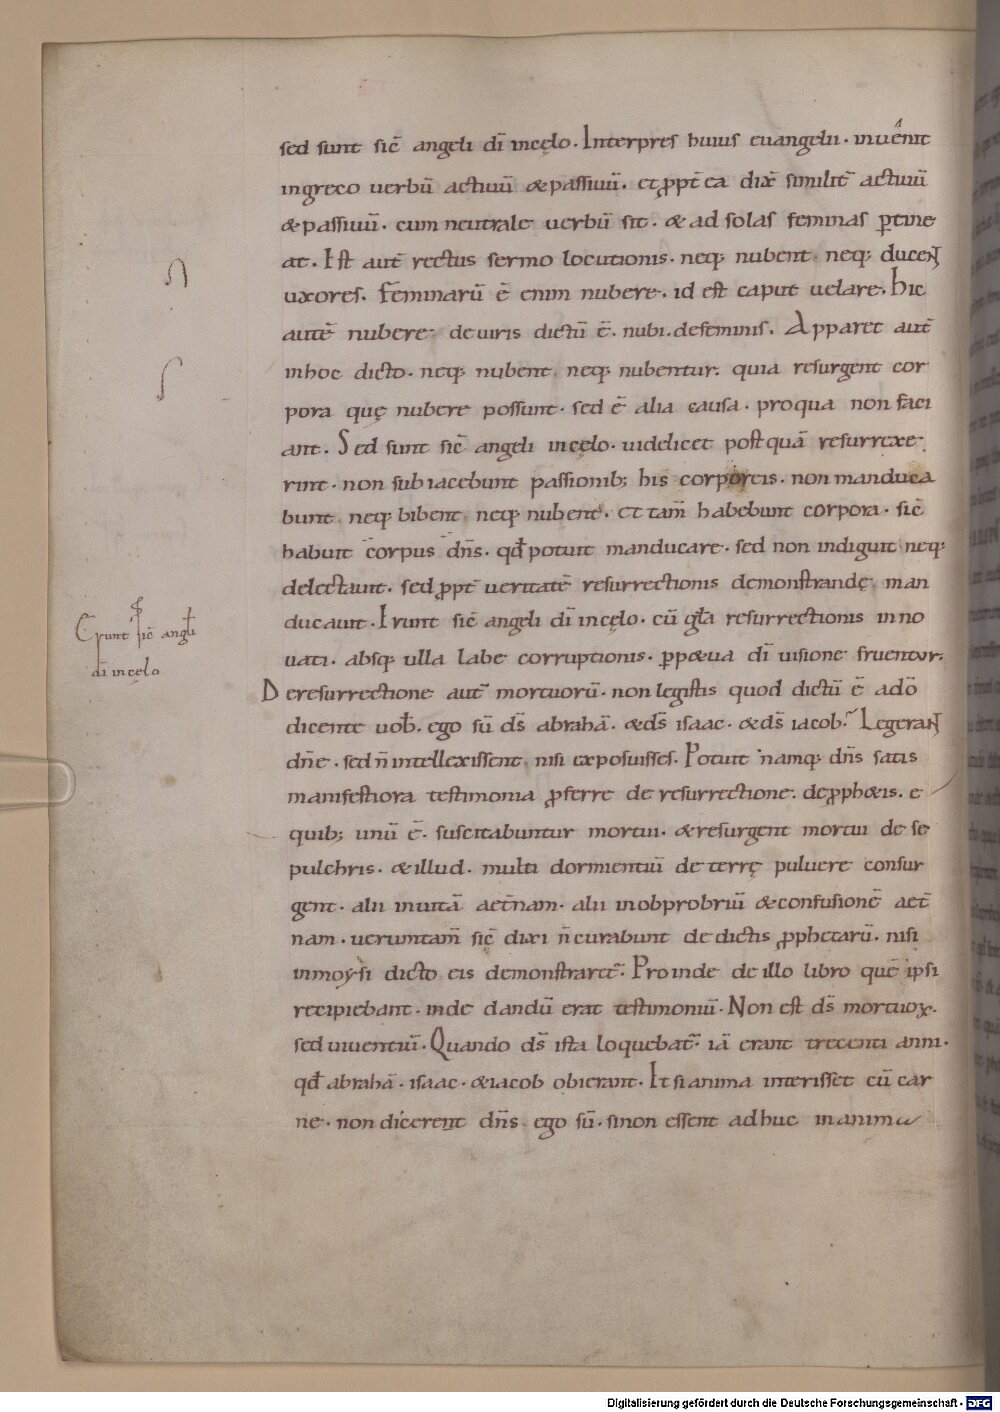 sed sunt sic̄ angeli dī incęlo. Interpres huius euangelii. inuenit
ingreco uerbū actiuū &passiuū. et ꝓpt̄ ea dix̄ similit̄ actiuū
&passiuū. cum neutrale uerbū sit. & ad solas feminas ꝑtine
at. Est aut̄ rectus sermo locutionis. neq; nubent. neq; ducent
uxores. Feminarū ē enim nubere. id est caput uelare. hic
autē nubere de uiris dictū ē. nubi. defeminis. Apparet aut̄
inhoc dicto. neq; nubent neq; nubentur. quia resurgent cor
pora quę nubere possunt. sed ē alia causa. proqua non faci
ant. Sed sunt sic̄ angeli incęlo. uidelicet postquā resurrexe
rint. non subiacebunt passionib; his corporeis. non manduca
bunt neq; bibent neq; nubent. et tam̄ habebunt corpora. sic̄
habuit corpus dn̄s. qđ potuit manducare. sed non indiguit neq;
delectauit. sed ꝓpt̄ ueritatē resurrectionis demonstrandę man
ducauit. Erunt sic̄ angeli dī incęlo. cū gl̄a resurrectionis inno
Erunt sic̄ angl̄i
dī incęlo
uati. absq; ulla labe corruptionis. ꝑp&ua dī uisione fruentur.
Deresurrectione aut̄ mortuorū. non legistis quod dictū ē adō
dicente uob̄. ego sū ds̄ abrahā. &ds̄ isaac. &ds̄ iacob. Legerant
dn̄e. sed n̄ intellexissent nisi exposuisses. Potuit namq; dn̄s satis
manifestiora testimonia ꝓferre de resurrectione. deꝓph&is. e
quib; unū ē. suscitabuntur mortui. &resurgent mortui de se
pulchris. &illud. multi dormientiū de terrę puluere consur
gent. alii inuitā aet̄nam. alii inobprobriū &confusionē aet̄
nam. ueruntam̄ sic̄ dixi n̄ curabunt de dictis ꝓphetarū. nisi
inmoysi dicto eis demonstraret̄. Proinde de illo libro quē ipsi
recipiebant. inde dandū erat testimoniū. Non est ds̄ mortuoꝝ.
sed uiuentiū. Quando ds̄ ista loquebat̄. iā erant trecenti anni.
qđ abrahā. isaac. &iacob obierant. Et si anima interisset cū car
ne. non dicerent dn̄s. ego sū. sinon essent adhuc inanima